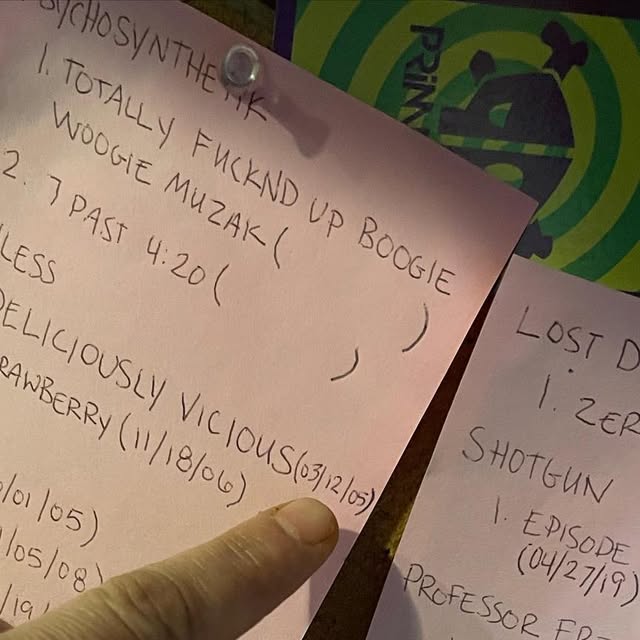 PSYCHOSYNTHETIK
1. TOTALLY FUCKND UP BOOGIE
WOOGIE MUZAK ( )
2. 7 PAST 4:20 ( )
LESS
DELICIOUSLY VICIOUS (03/12/05)
RAWBERRY (11/18/06)
/01/05)
1/05/08)
/19/
PRIM
LOST D
1. ZER
SHOTGUN
1. EPISODE
(04/27/19)
PROFESSOR FR